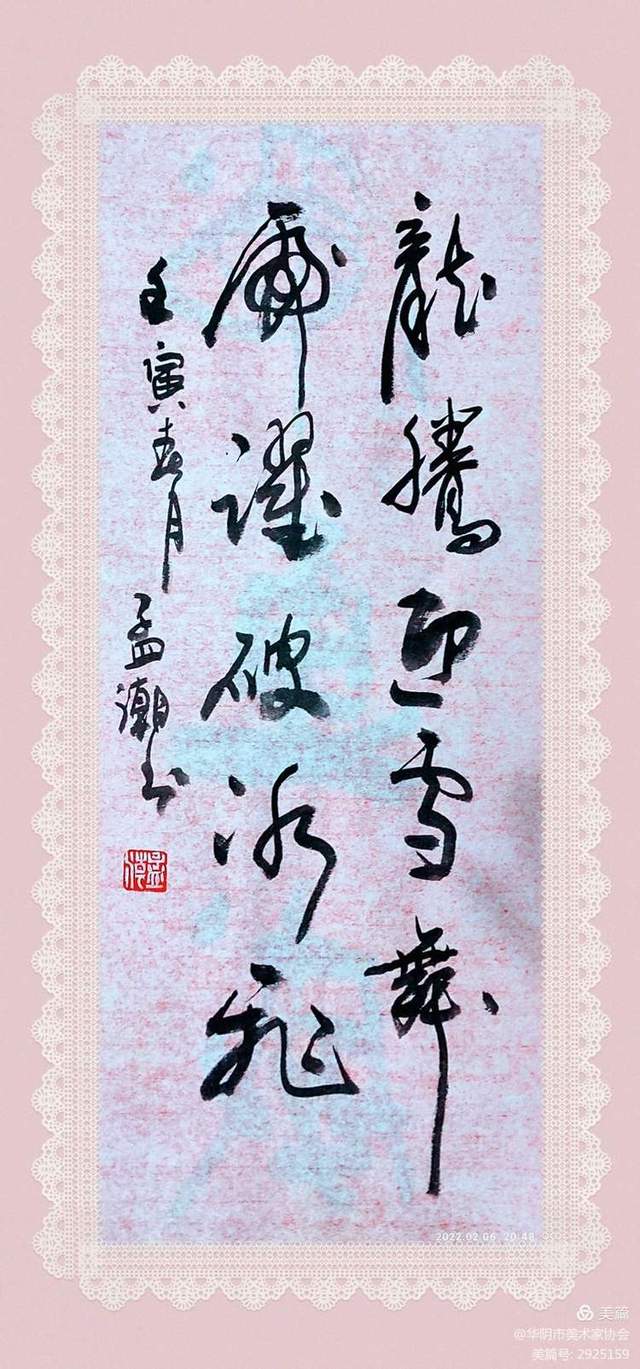 龍騰迎雪舞
虎躍破冰飛
壬寅春月
孟潮书
孟潮
2022.02.06 20:48
美篇
@华阴市美术家协会
美篇号: 2925159